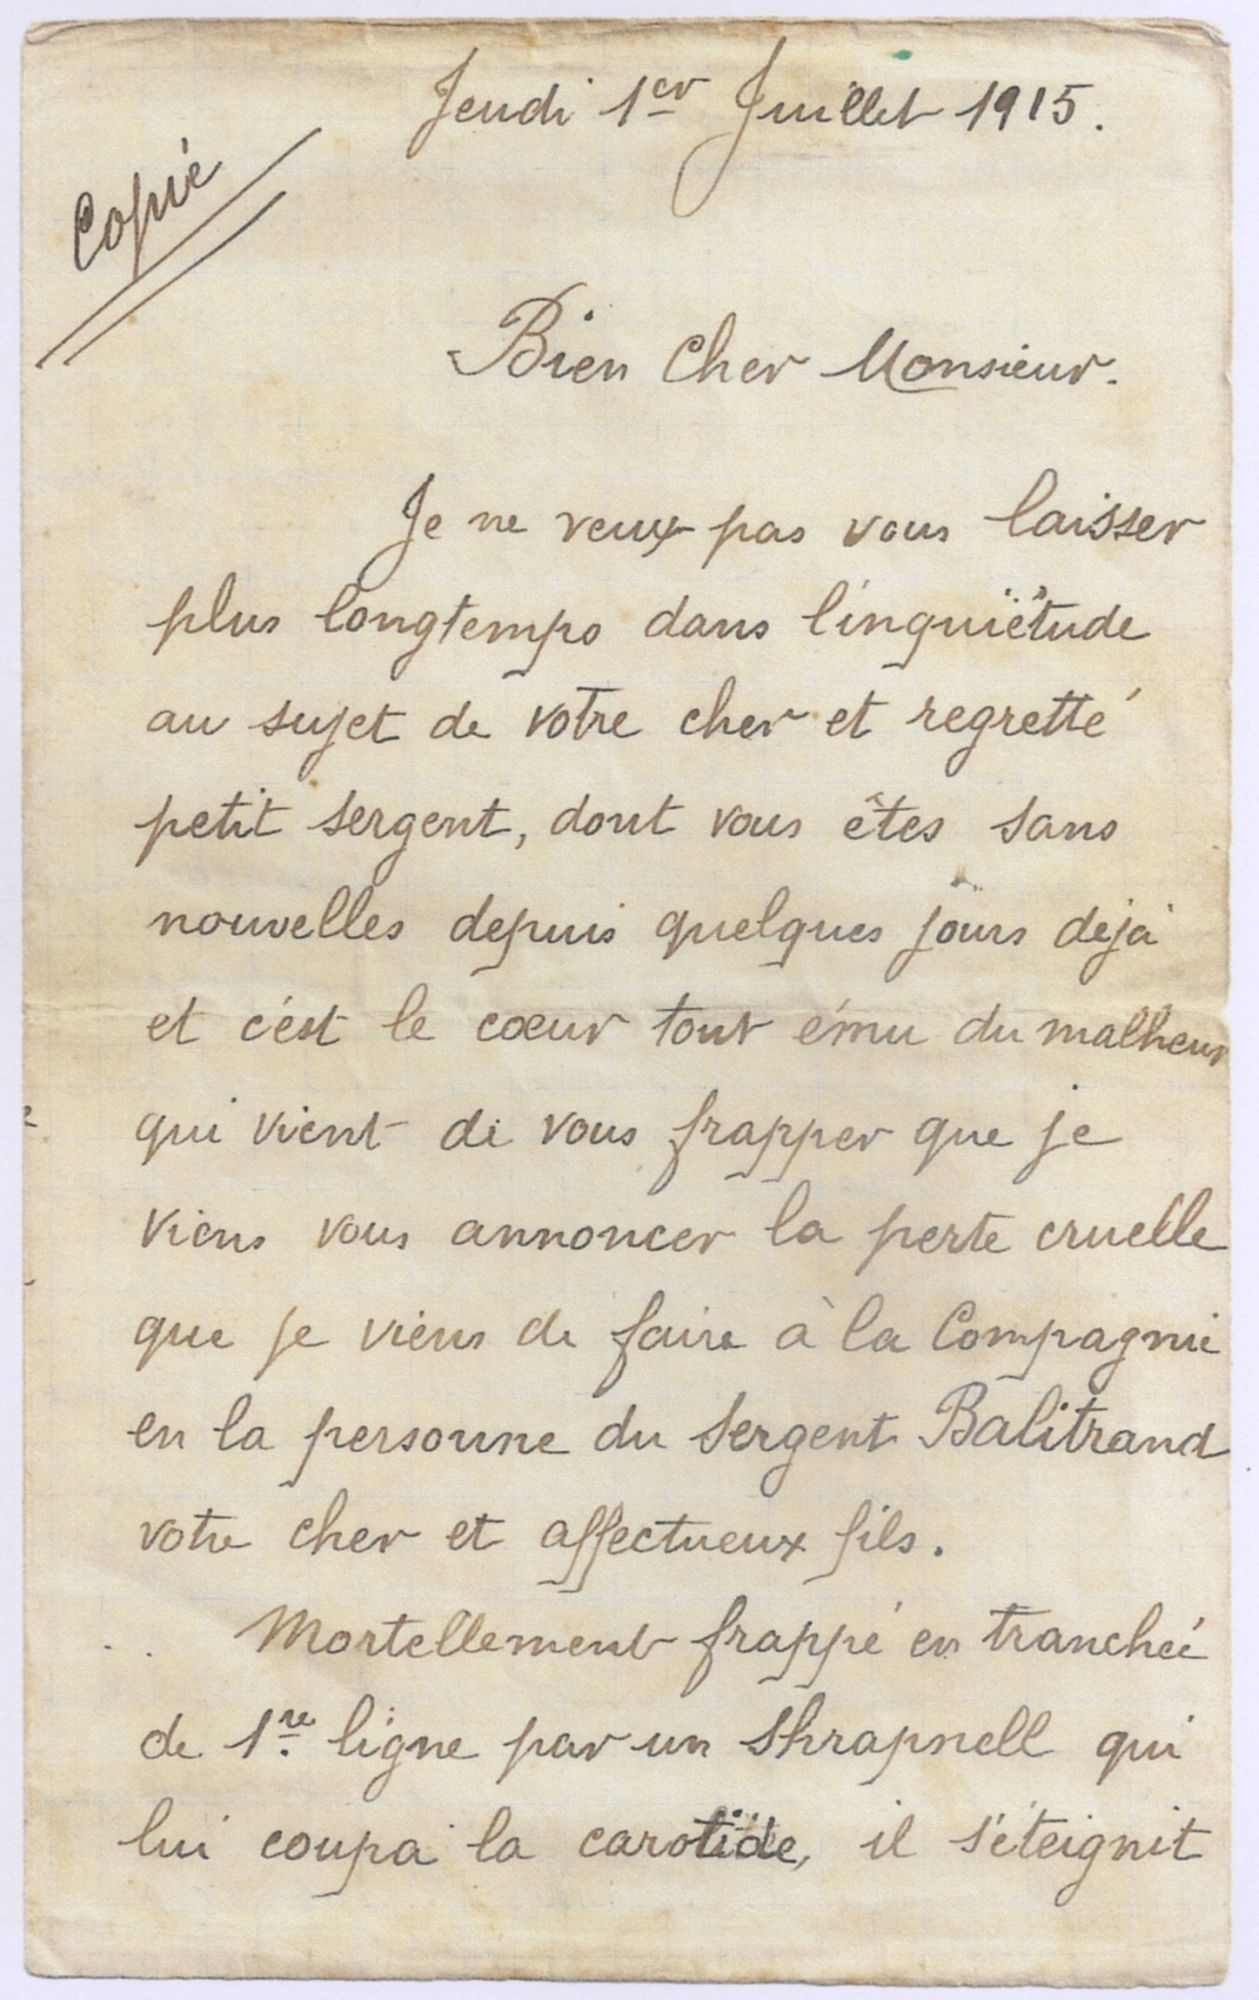 Jeudi 1er Juillet 1915.
Copie
Bien Cher Monsieur.
Je ne veux pas vous laisser
plus longtemps dans l'inquiètude
au sujet de votre cher et regretté
petit sergent, dont vous êtes sans
nouvelles depuis quelques jours déjà
et c'est le cœur tout ému du malheur
qui vient de vous frapper que je
viens vous annoncer la perte cruelle
que je viens de faire à la Compagnie
en la personne du Sergent Balitrand
votre cher et affectueux fils.
Mortellement frappé en tranchée
de 1re ligne par un Shrapnell qui
lui coupa la carotide, il s'éteignit